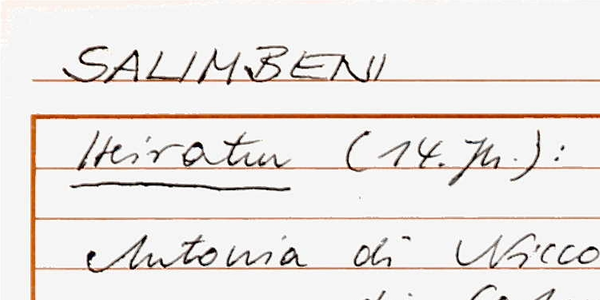 SALIMBENI
Heiraten (14. Jh.):
Antonia di Nicco
di